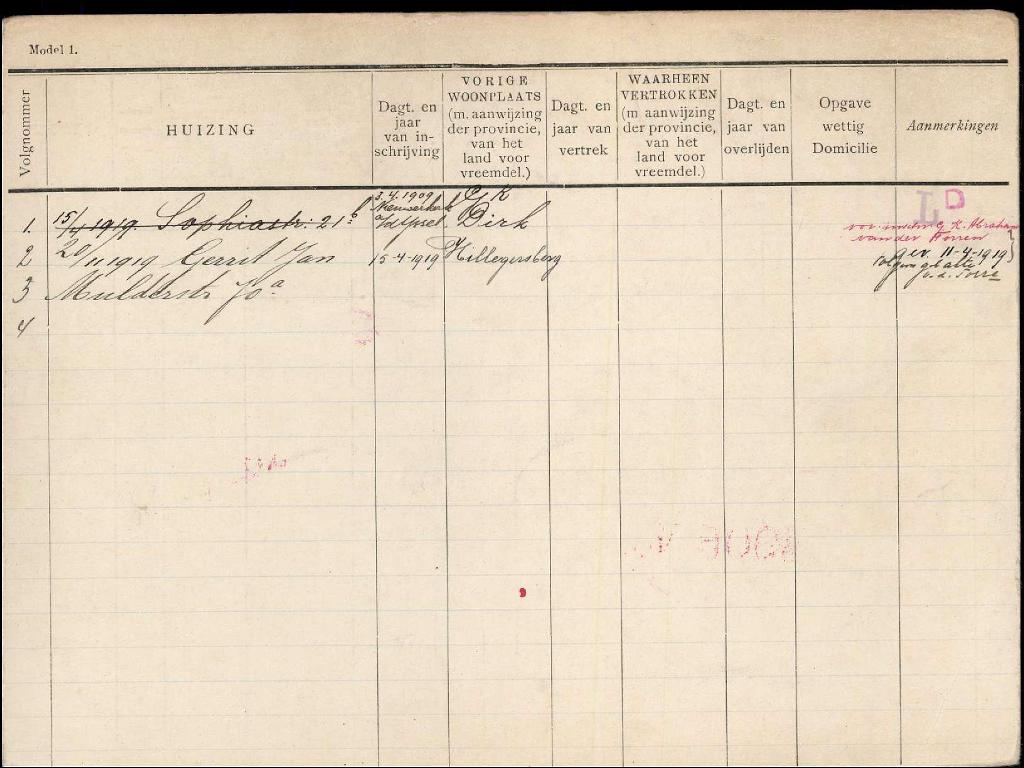 Model 1.
Volgnommer
HUIZING
Dagt. en
jaar
van in-
schrijving
VORIGE
WOONPLAATS
(m. aanwijzing
der provincie,
van het
land voor
vreemdel.)
Dagt. en
jaar van
vertrek
WAARHEEN
VERTROKKEN
(m. aanwijzing
der provincie,
van het
land voor
vreemdel.)
Dagt. en
jaar van
overlijden
Opgave
wettig
Domicilie
Aanmerkingen
1. 15/4 1919 Sophiastr. 21b
3.4.1909
a/d IJssel
G K
Dirk
LD
v. K. Abraham
van der Torren
2 20/11 1919 Gerrit Jan
15-4-1919 Hillegersberg
gev. 11-4-1919
volgens
3 Mulderstr 70a
4